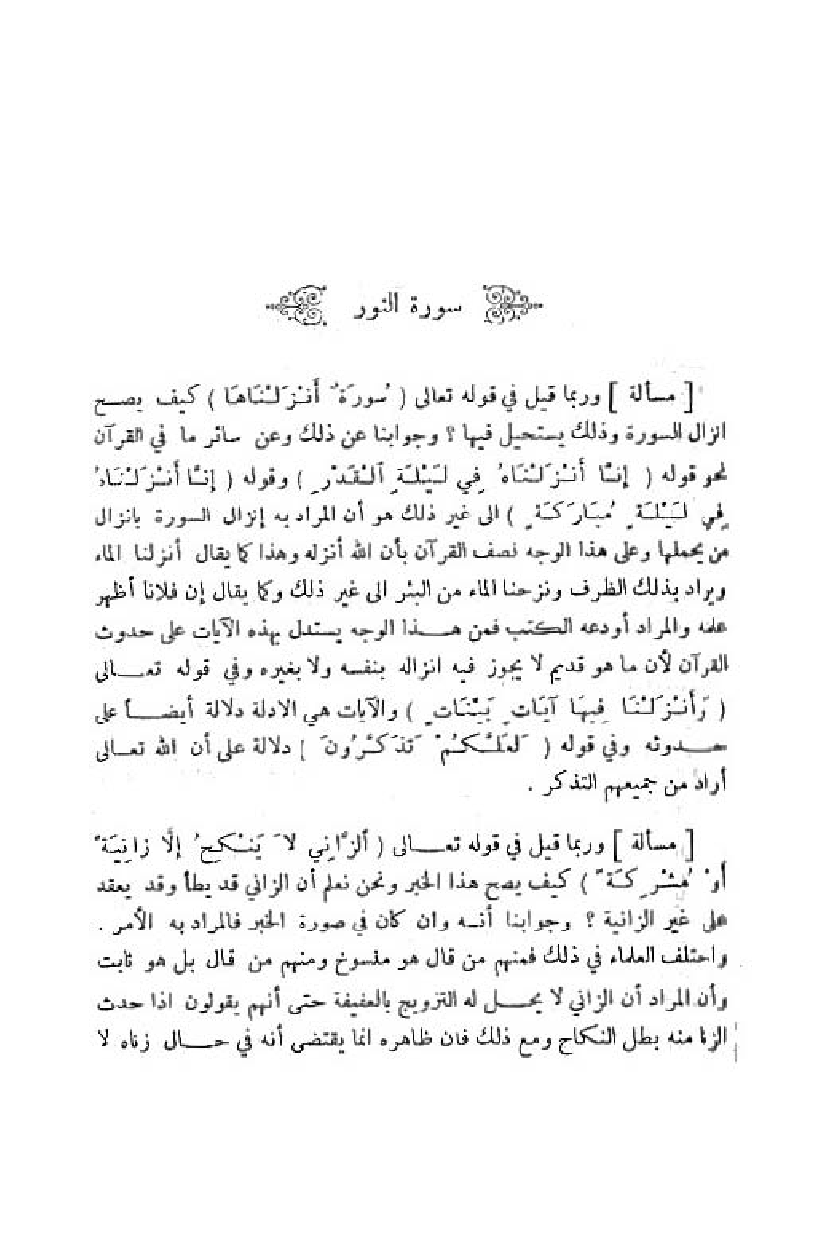 سورة النور
[ مسألة ] وربما قيل في قوله تعالى ( سُورَةٌ أَنْزَلْنَاهَا ) كيف يصح
انزال السورة وذلك يستحيل فيها ؟ وجوابنا عن ذلك وعن سائر ما في القرآن
نحو قوله ( إِنَّا أَنْزَلْنَاهُ فِي لَيْلَةِ الْقَدْرِ ) وقوله ( إِنَّا أَنْزَلْنَاهُ
فِي لَيْلَةٍ مُبَارَكَةٍ ) الى غير ذلك هو أن المراد به إنزال السورة بانزال
من يحملها وعلى هذا الوجه نصف القرآن بأن الله أنزله وهذا كما يقال أنزلنا الماء
ويراد بذلك الظرف ونزحنا الماء من البئر الى غير ذلك وكما يقال إن فلانا أظهر
علمه والمراد أودعه الكتب فمن هـذا الوجه يستدل بهذه الآيات على حدوث
القرآن لأن ما هو قديم لا يجوز فيه انزاله بنفسه ولا بغيره وفي قوله تعـالى
( وَأَنْزَلْنَا فِيهَا آيَاتٍ بَيِّنَاتٍ ) والآيات هي الادلة دلالة أيضـاً على
حـدوثه وفي قوله ( لَعَلَّكُمْ تَذَكَّرُونَ ) دلالة على أن الله تعـالى
أراد من جميعهم التذكر .
[ مسألة ] وربما قيل في قوله تعـالى ( الزَّانِي لاَ يَنْكِحُ إِلَّا زَانِيَةً
أَوْ مُشْرِكَةً ) كيف يصح هذا الخبر ونحن نعلم أن الزاني قد يطأ وقد يعقد
على غير الزانية ؟ وجوابنا أنـه وان كان في صورة الخبر فالمراد به الأمر .
واختلف العلماء في ذلك فمنهم من قال هو منسوخ ومنهم من قال بل هو ثابت
وأن المراد أن الزاني لا يحـل له التزويج بالعفيفة حتى أنهم يقولون اذا حدث
الزنا منه بطل النكاح ومع ذلك فان ظاهره انما يقتضى أنه في حـال زناه لا